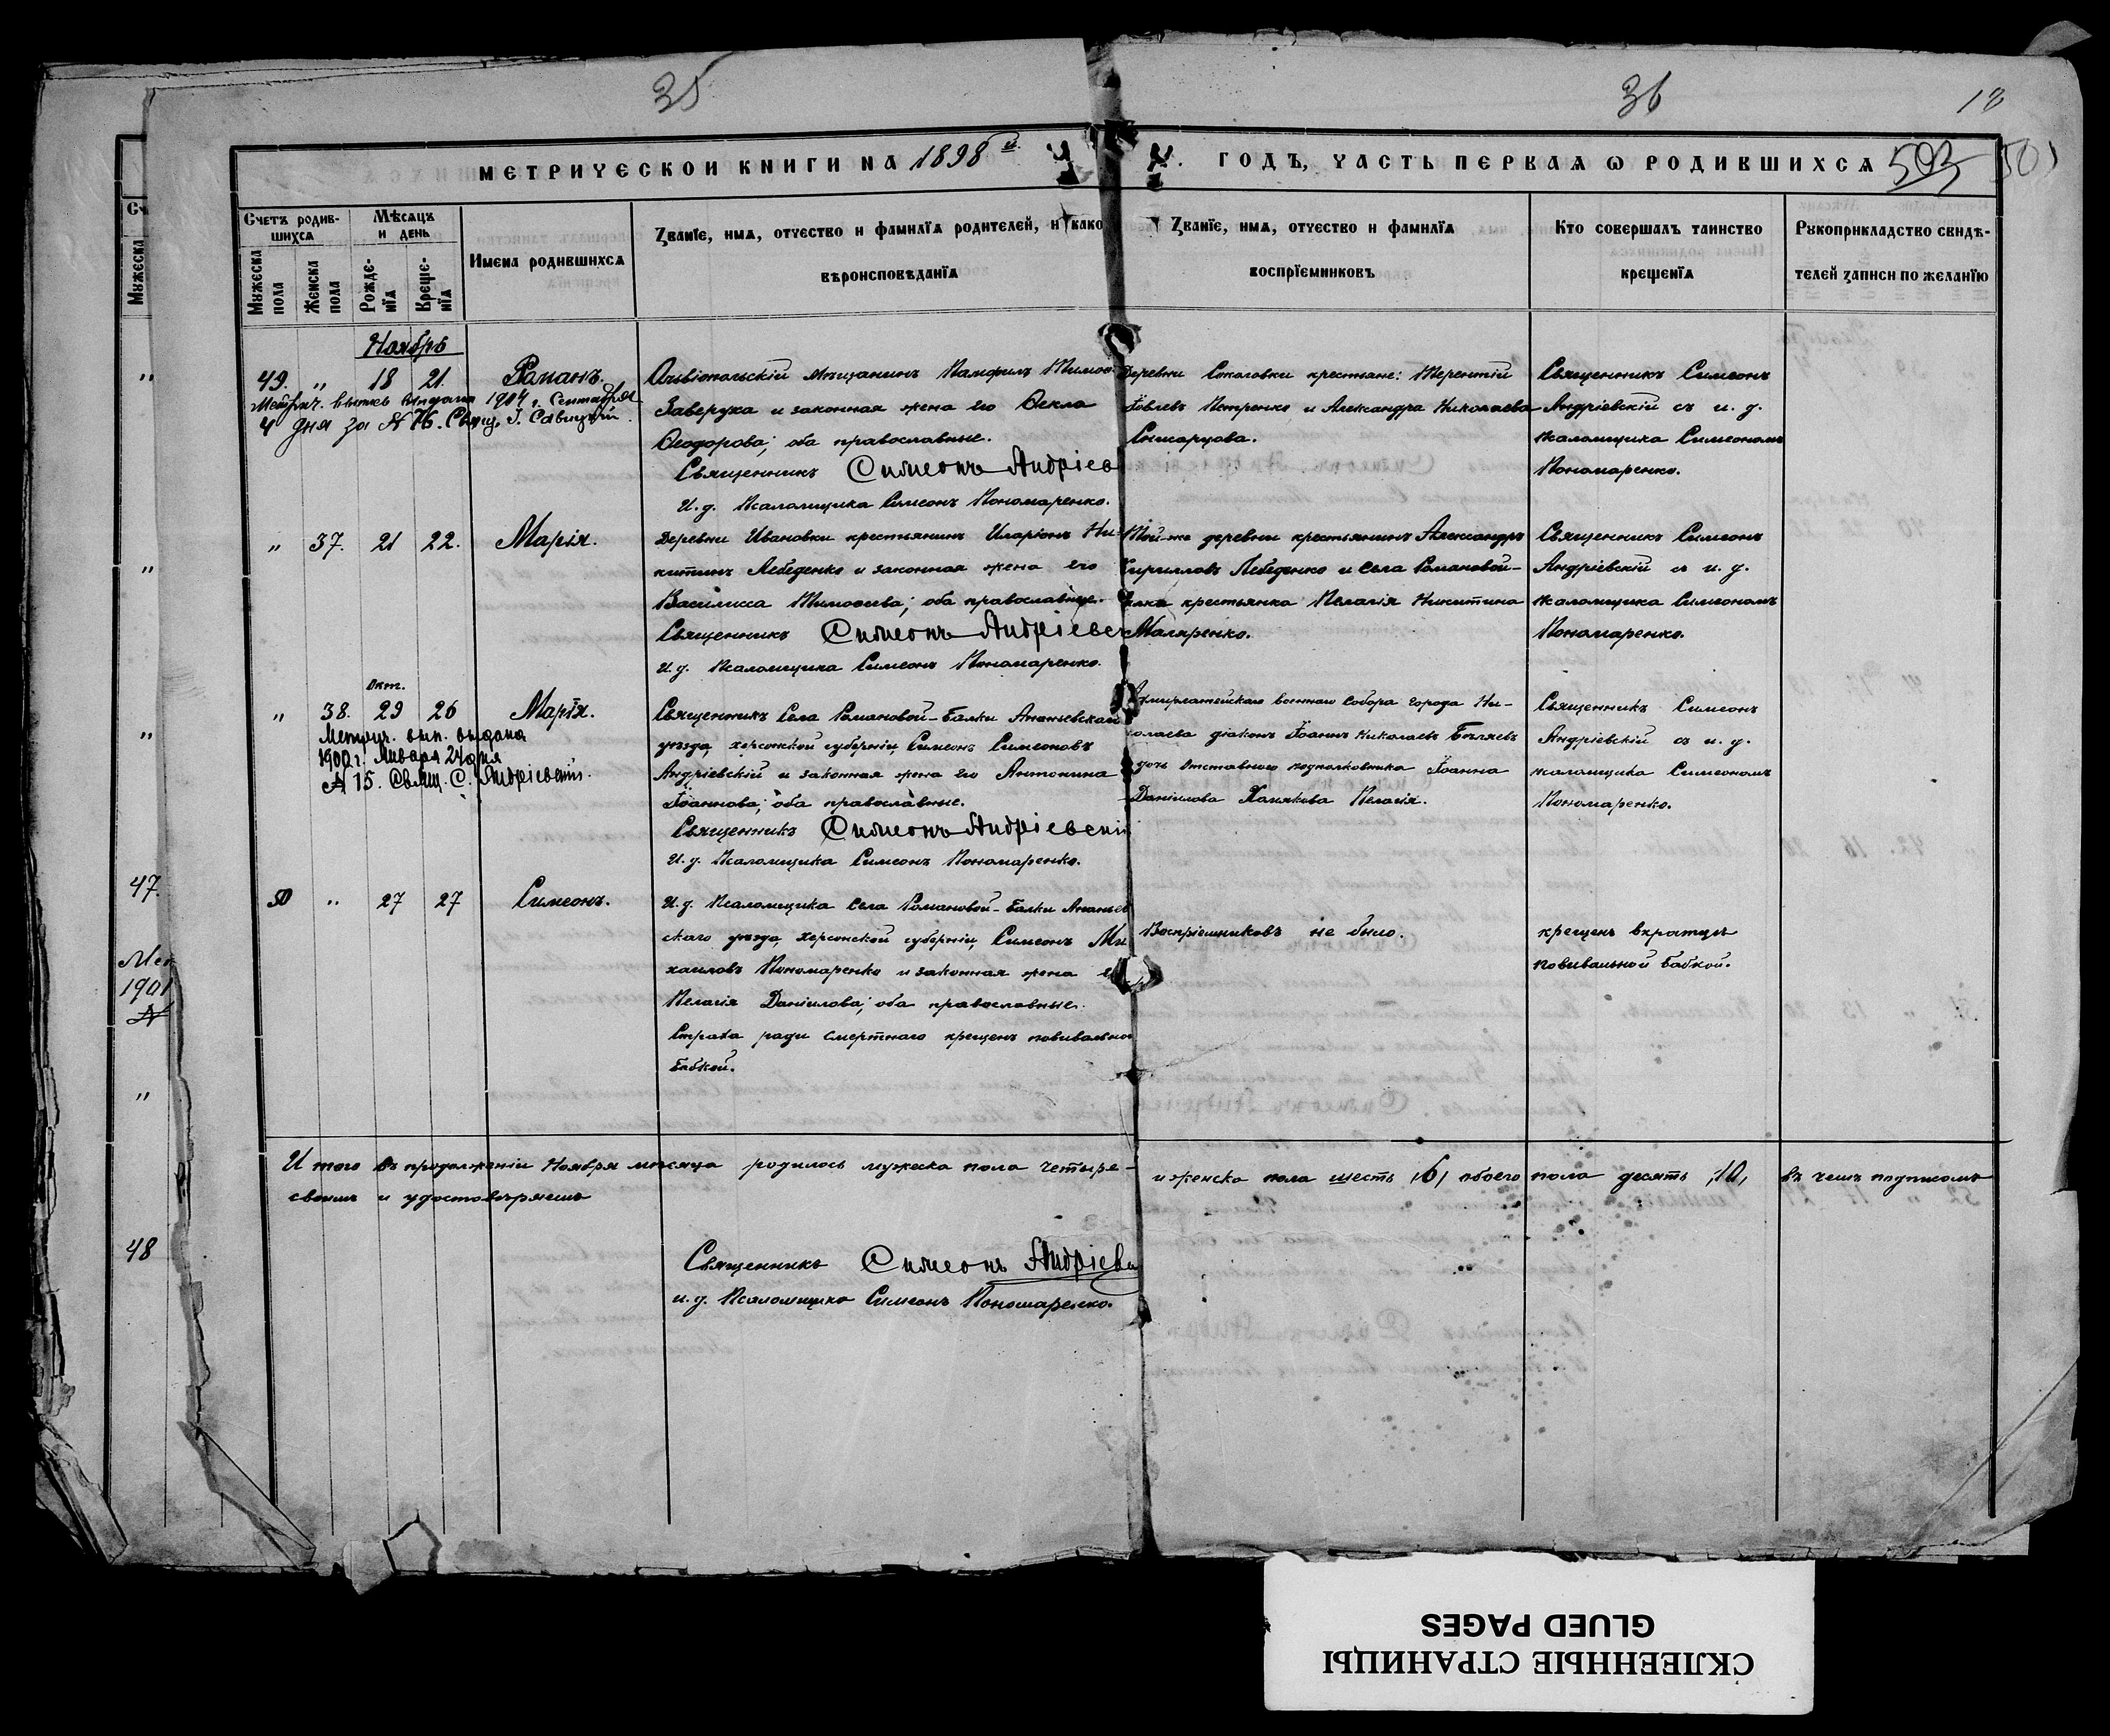 35
36
18
МЕТРИЧЕСКОЙ КНИГИ НА 1898й
ГОДЪ, ЧАСТЬ ПЕРВАЯ Ѡ РОДИВШИХСЯ
503
501
Счетъ родив-
шихся
Мѣсяцъ
и день
Мужеска
пола
Женска
пола
Рожде-
нїя
Креще-
нїя
Имена родившихся
Званїе, имя, отчество и фамилїя родителей, и како
вѣроисповѣданїя
Званїе, имя, отчество и фамилїя
воспрїемниковъ
Кто совершалъ таинство
крещенїя
Рукоприкладство свидѣ-
телей записи по желанїю
Ноябрь
49. " 18 21. Романъ.
Метрич. выпись выдана 1904 г. Сентября
4 дня за № 76. Свящ. І. Савицкій.
Ольвіопольскій мѣщанинъ Памфилъ Тимоѳ.
Заверуха и законная жена его Ѳекла
Ѳеодорова; оба православные.
Священникъ Симеонъ Андріев
И. д. Псаломщика Симеонъ Пономаренко.
Деревни Соколовки крестьяне: Терентій
Іовлевъ Петренко и Александра Николаева
Снисарцова.
Священникъ Симеонъ
Андріевскій съ и. д.
псаломщика Симеономъ
Пономаренко.
" 37. 21 22. Марія.
Деревни Ивановки крестьянинъ Иларіонъ Ни-
китинъ Лебеденко и законная жена его
Василисса Тимоѳеева; оба православные.
Священникъ Симеонъ Андріевск
И. д. Псаломщика Симеонъ Пономаренко.
Той-же деревни крестьянинъ Александръ
Кирилловъ Лебеденко и села Романовой-
Балки крестьянка Пелагія Никитина
Маляренко.
Священникъ Симеонъ
Андріевскій съ и. д.
псаломщика Симеономъ
Пономаренко.
Окт.
" 38. 29 26 Марія.
Метрич. вып. выдана
1900 г. Января 24 дня
№ 15. Свящ. С. Андріевскій.
Священникъ Села Романовой-Балки Ананьевскаго
уѣзда, херсонской губерніи, Симеонъ Симеоновъ
Андріевскій и законная жена его Антонина
Іоаннова; оба православные.
Священникъ Симеонъ Андріевскій
И. д. Псаломщика Симеонъ Пономаренко.
Адмиралтейскаго военнаго Собора города Ни-
колаева діаконъ Іоаннъ Николаевъ Бѣляевъ
и дочь отставного подполковника Іоанна
Даніилова Пелагія.
Священникъ Симеонъ
Андріевскій съ и. д.
псаломщика Симеономъ
Пономаренко.
50 " 27 27 Симеонъ.
И. д. Псаломщика села Романовой-Балки Ананьев
скаго уѣзда, херсонской губерніи, Симеонъ Ми
хаиловъ Пономаренко и законная жена е
Пелагія Даніилова; оба православные.
Страха ради смертнаго крещенъ повивальной
бабкой.
Воспріемниковъ не было.
крещенъ вкратцѣ
повивальной бабкой.
И того въ продолженіи Ноября мѣсяца родилось мужеска пола четыре-
и женска пола шесть /6/ обоего пола десять /10/ въ чемъ подписомъ
своимъ и удостовѣряемъ
Священникъ Симеонъ Андріевск
и. д. Псаломщика Симеонъ Пономаренко.
47.
Мет
1901
№
48
СКЛЕЕННЫЕ СТРАНИЦЫ
GLUED PAGES